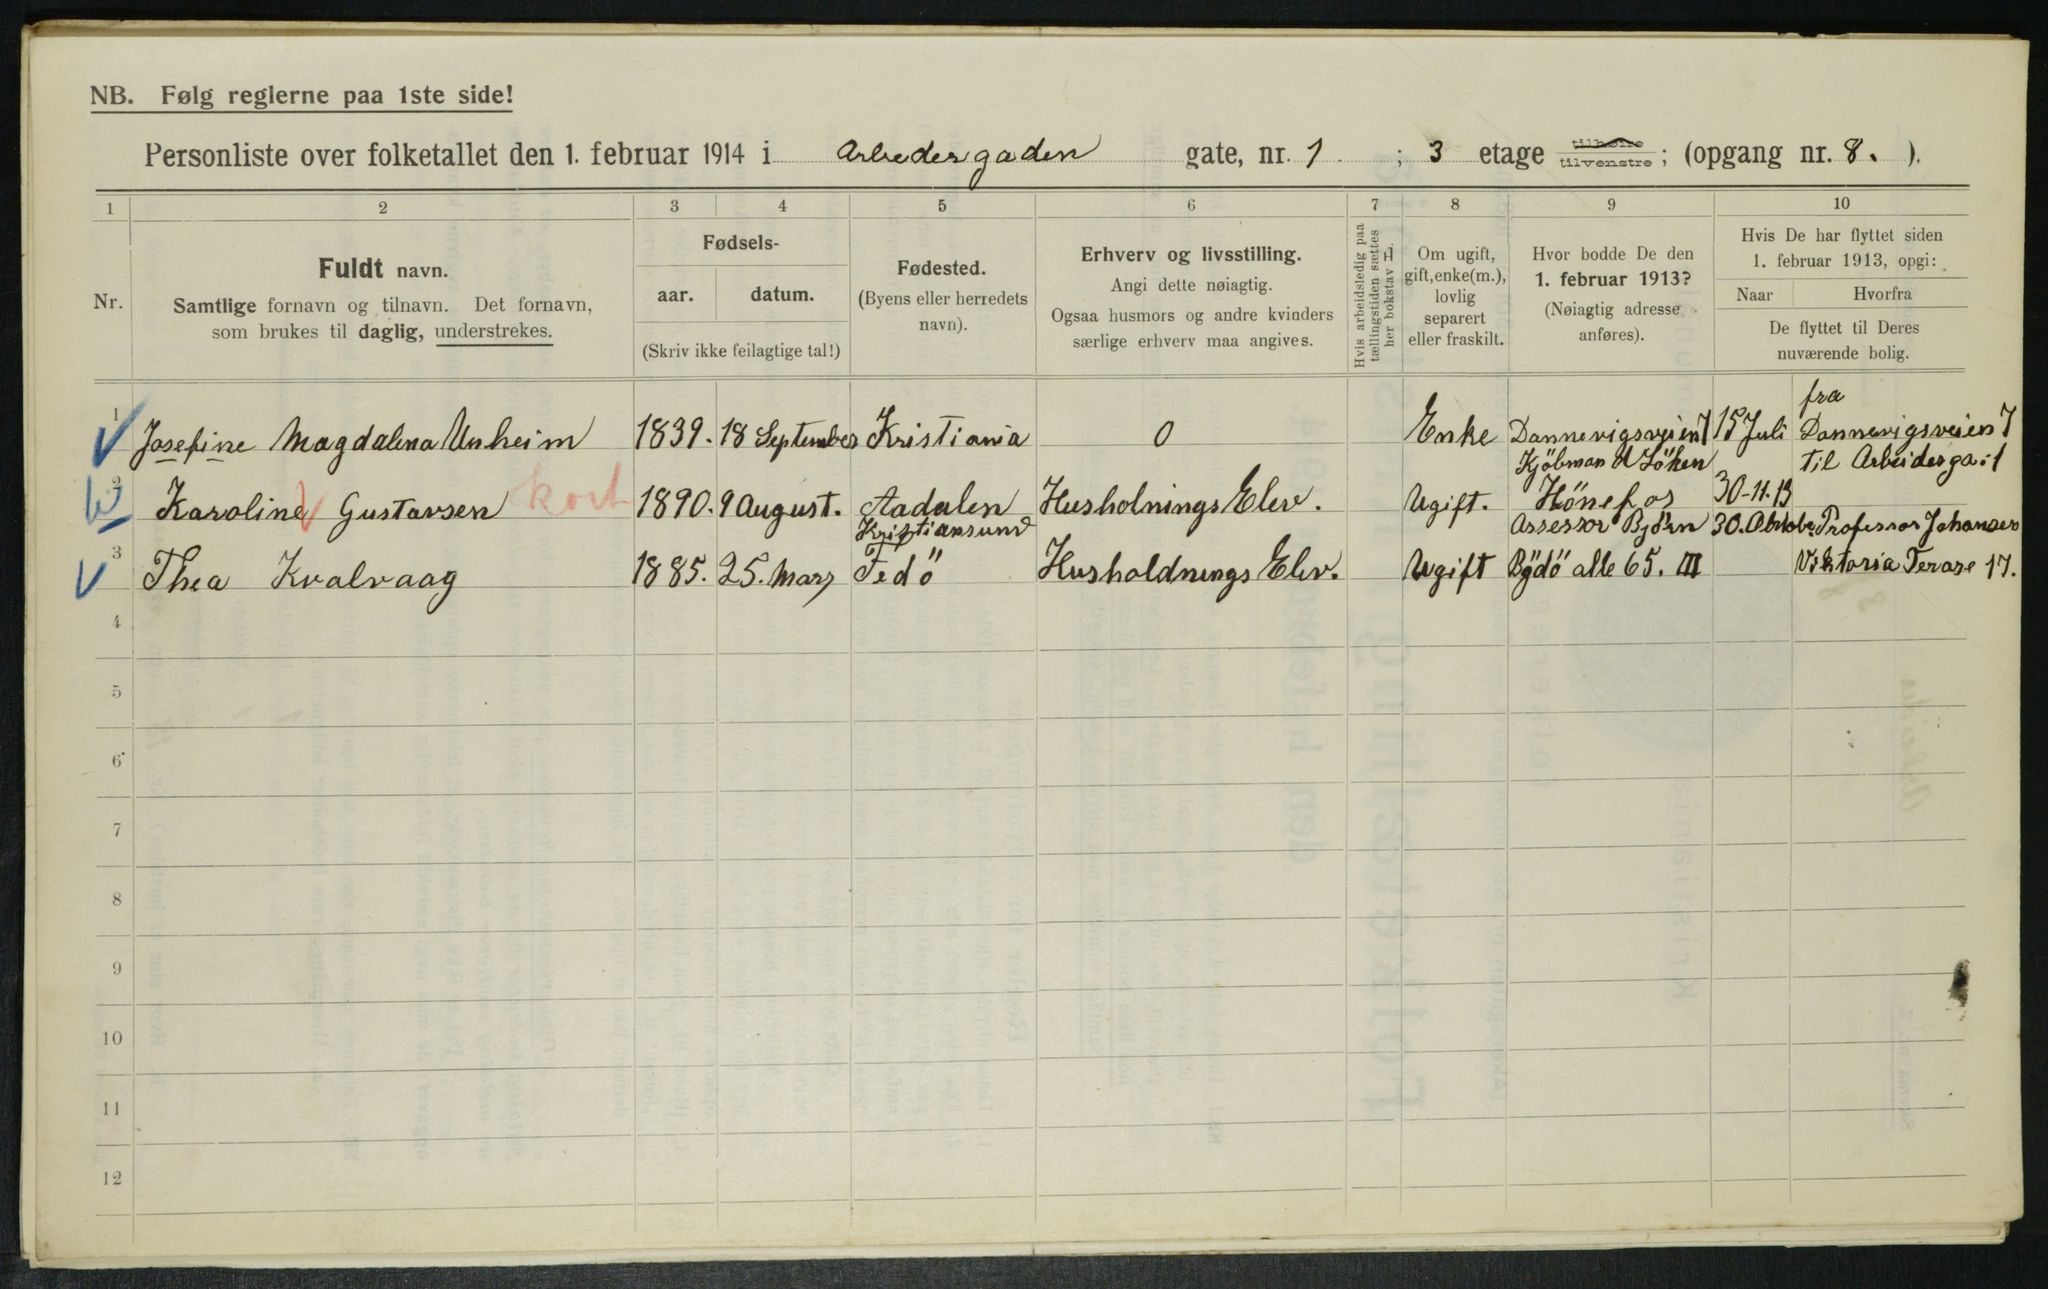 NB. Følg reglerne paa 1ste side!
Personliste over folketallet den 1. februar 1914 i Arbedergaden gate, nr. 1 ; 3 etage tilhøire tilvenstre ; (opgang nr. 8. ).
1 2 3 4 5 6 7 8 9 10
Nr.
Fuldt navn.
Samtlige fornavn og tilnavn. Det fornavn,
som brukes til daglig, understrekes.
Fødsels-
aar. datum.
(Skriv ikke feilagtige tal!)
Fødested.
(Byens eller herredets
navn).
Erhverv og livsstilling.
Angi dette nøiagtig.
Ogsaa husmors og andre kvinders
særlige erhverv maa angives.
Hvis arbeidsledig paa
tællingstiden sættes
her bokstav l.
Om ugift,
gift, enke(m.),
lovlig
separert
eller fraskilt.
Hvor bodde De den
1. februar 1913?
(Nøiagtig adresse
anføres).
Hvis De har flyttet siden
1. februar 1913, opgi:
Naar Hvorfra
De flyttet til Deres
nuværende bolig.
fra
1 Josefine Magdalena Unheim 1839. 18 September Kristiania 0 Enke Dannevigsveien 7 15 Juli Dannevigsveien 7
Kjöbman til Arbeiderga: 1
2 Karoline Gustavsen kort 1890. 9 August. Aadalen Husholnings Elev. Ugift. Hönefos 30-11.13
Kristiansund Assessor Björn 30. Professor Johansen
3 Thea Kvalvaag 1885. 25. Mars Fedö Husholdnings Elev. Ugift Bygdö alle 65. III Viktoria Terase 17.
4
5
6
7
8
9
10
11
12